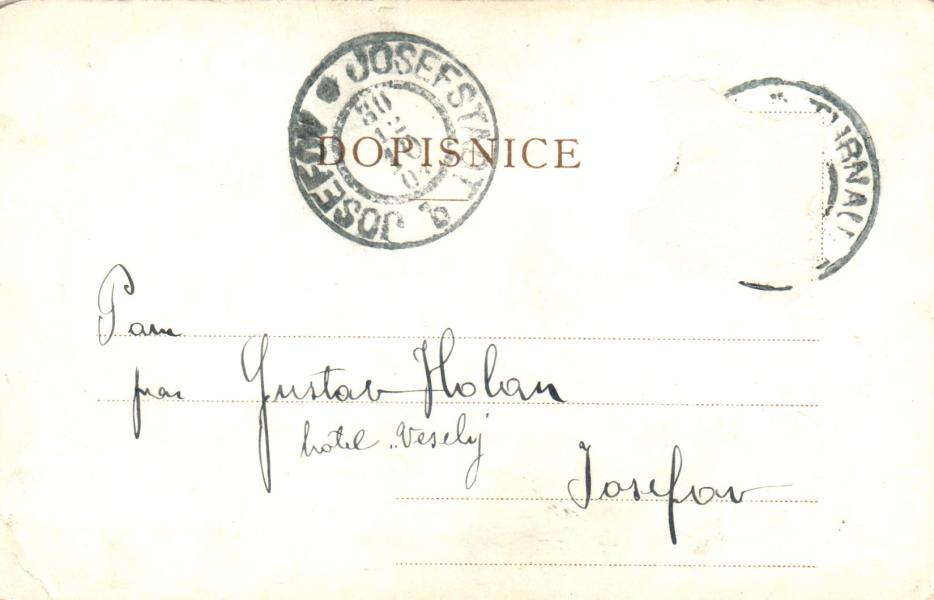 JOSEFSTADT * JOSEFOV
DOPISNICE
TURNAU
Pan
pan Gustav Holan
hotel „Veselý
Josefov